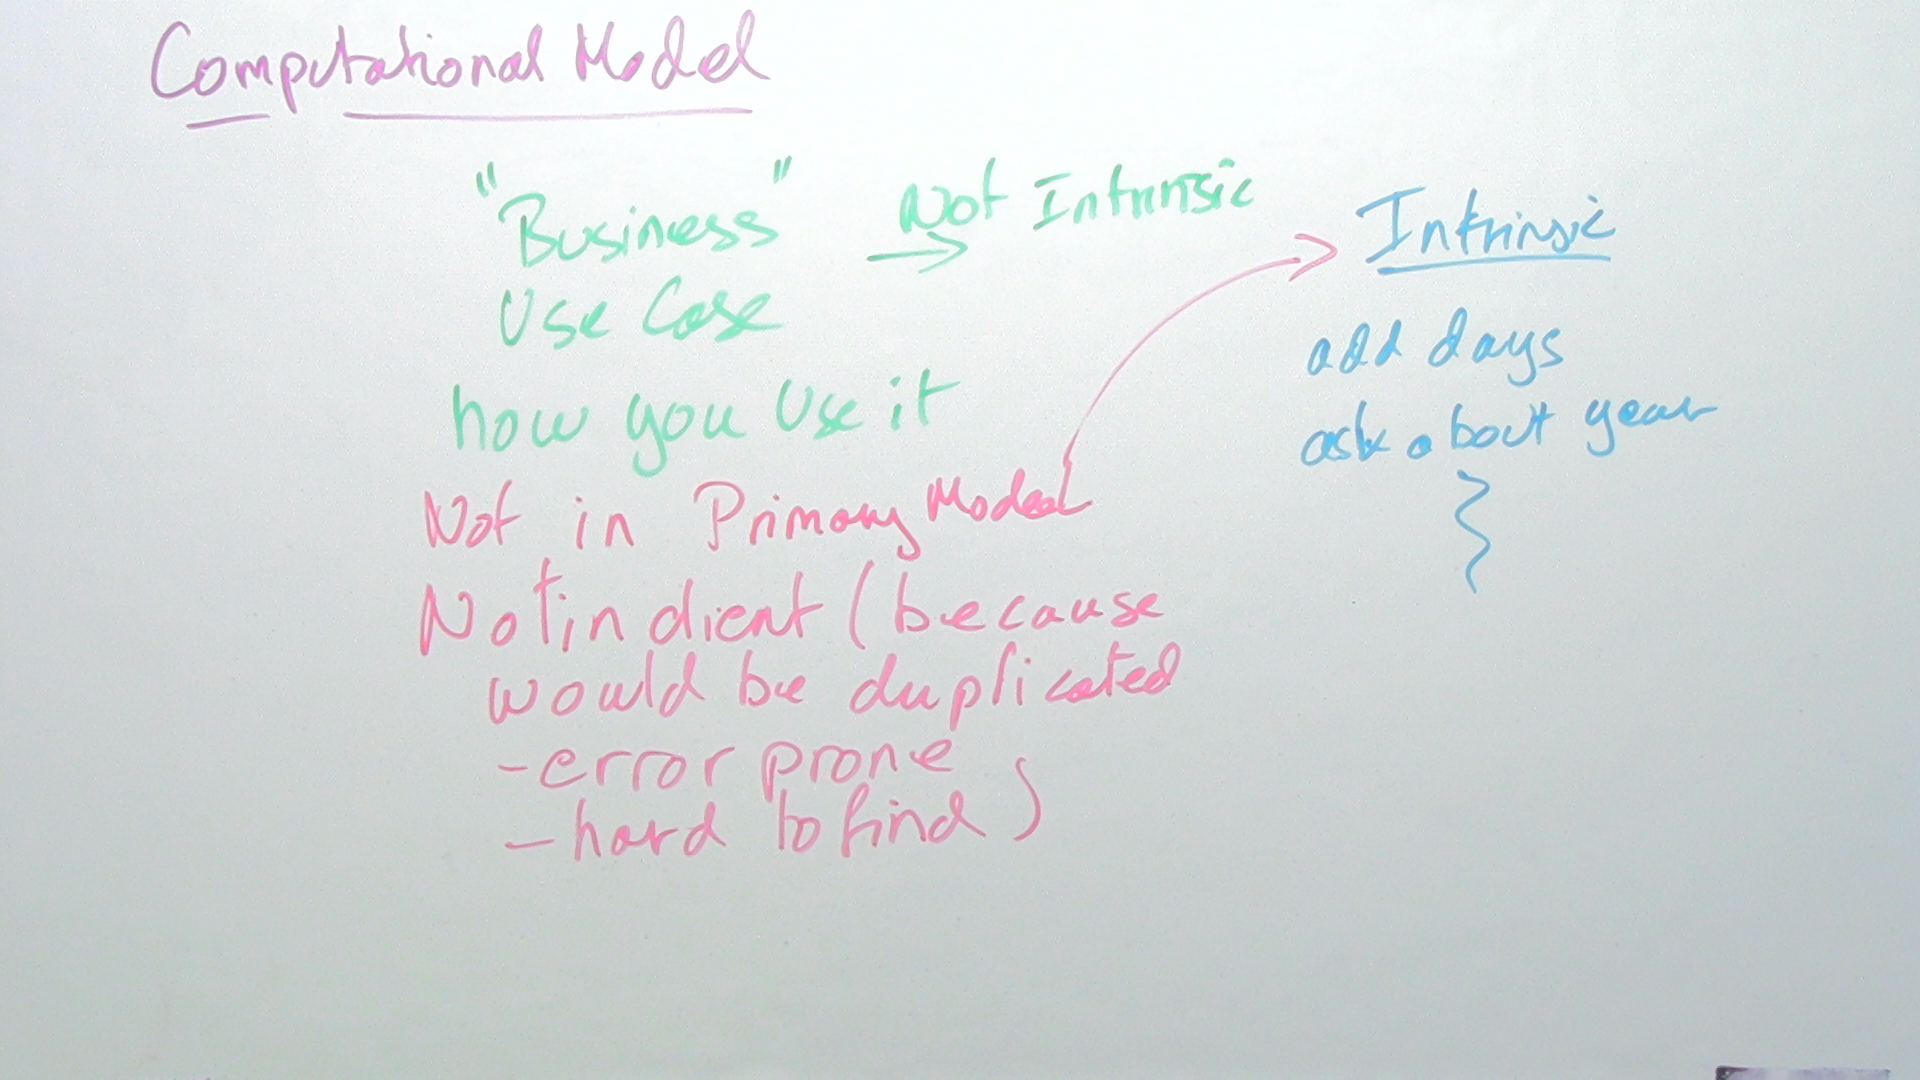 Computational Model
"Business" → Not Intrinsic
Use Case
how you use it
Not in Primary Model
Not in client (because
would be duplicated
- error prone
- hard to find)
Intrinsic
add days
ask about year